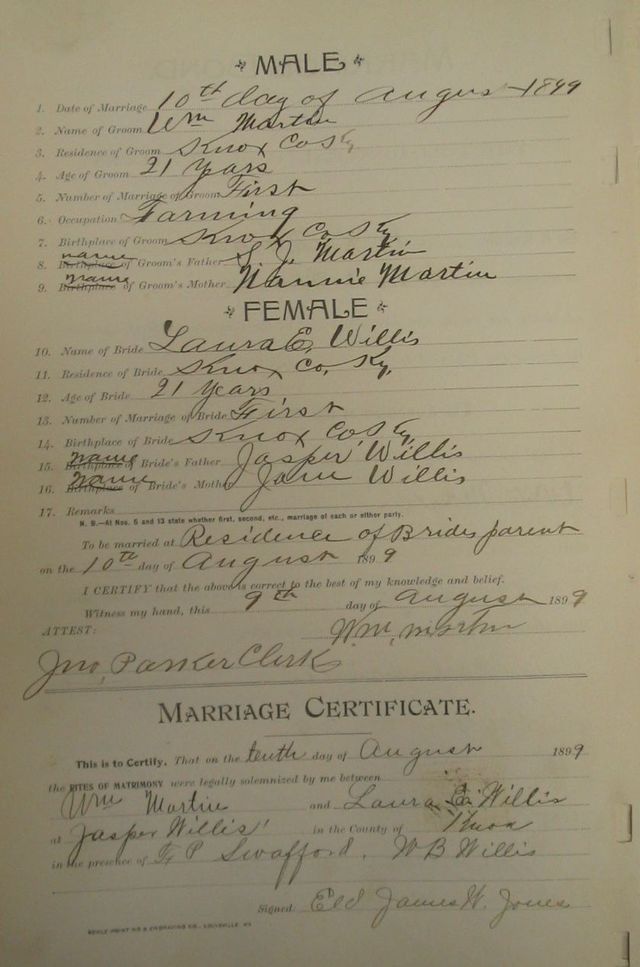 MALE
1. Date of Marriage 10th day of Augus 1899
2. Name of Groom Wm Martin
3. Residence of Groom Knox Co Ky
4. Age of Groom 21 years
5. Number of Marriage of Groom First
6. Occupation Farming
7. Birthplace of Groom Knox Co Ky
8. Birthplace name of Groom's Father S. J. Martin
9. Birthplace name of Groom's Mother Nannie Martin
FEMALE
10. Name of Bride Laura E. Willis
11. Residence of Bride Knox Co. Ky.
12. Age of Bride 21 years
13. Number of Marriage of Bride First
14. Birthplace of Bride Knox Co Ky
15. Birthplace name of Bride's Father Jasper Willis
16. Birthplace name of Bride's Mother Jane Willis
17. Remarks
N. B.—At Nos. 5 and 13 state whether first, second, etc., marriage of each or either party.
To be married at Residence of Brides parent
on the 10th day of August 1899
I CERTIFY that the above is correct to the best of my knowledge and belief.
Witness my hand, this 9th day of August 1899
ATTEST: Wm, Martin
Jno, Parker Clerk
MARRIAGE CERTIFICATE.
This is to Certify, That on the tenth day of August 1899
the RITES OF MATRIMONY were legally solemnized by me between
Wm Martin and Laura E. Willis
at Jasper Willis' in the County of Knox
in the presence of P Swafford. W B Willis
Signed Eld James W. Jones
PRINTING & ENGRAVING CO., LOUISVILLE, KY.